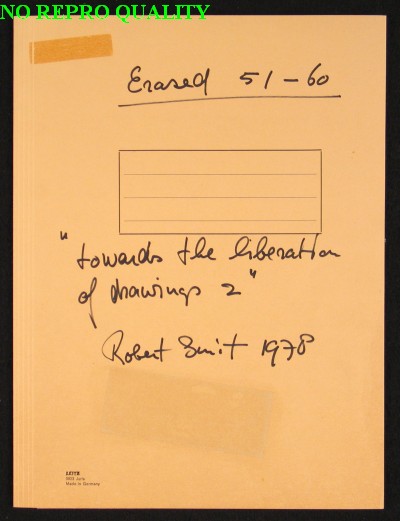 NO REPRO QUALITY
Erased 51-60
"towards the liberation
of drawings 2"
Robert Smit 1978
LEITZ
Made in Germany